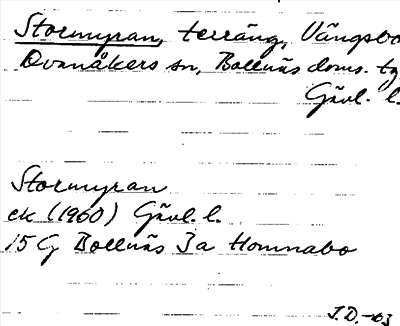 Stormyran, terräng, Vängsbo
Ovanåkers sn, Bollnäs doms. tg
Gävl. l.
Stormyran
ek (1960) Gävl. l.
15 G Bollnäs 3a Homnabo
J.D.-63